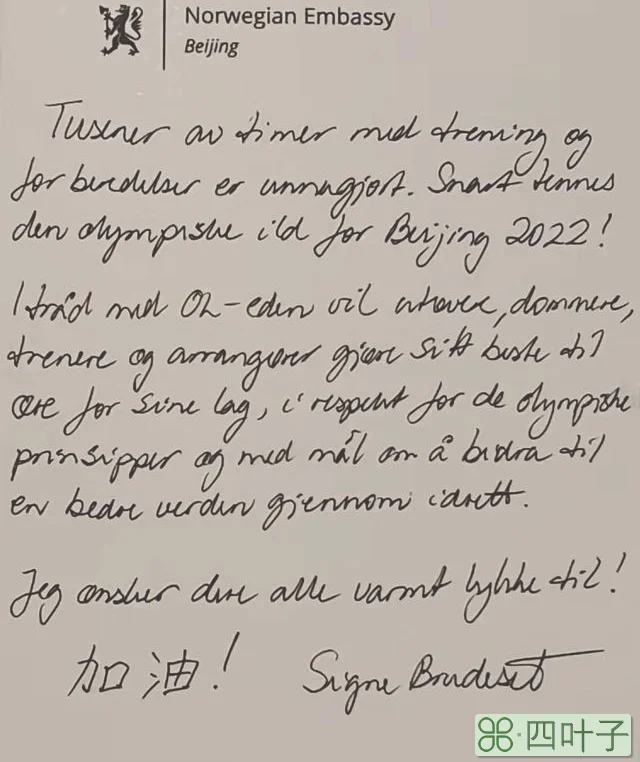 Norwegian Embassy
Beijing
Tusener av timer med trening og
forberedelser er unnagjort. Snart tennes
den olympiske ild for Beijing 2022!
I tråd med OL-eden vil utøvere, dommere,
trenere og arrangører gjøre sitt beste til
ære for sine lag, i respekt for de olympiske
prinsipper og med mål om å bidra til
en bedre verden gjennom idrett.
Jeg ønsker dere alle varmt lykke til!
加油! Signe Brudeset
四叶子